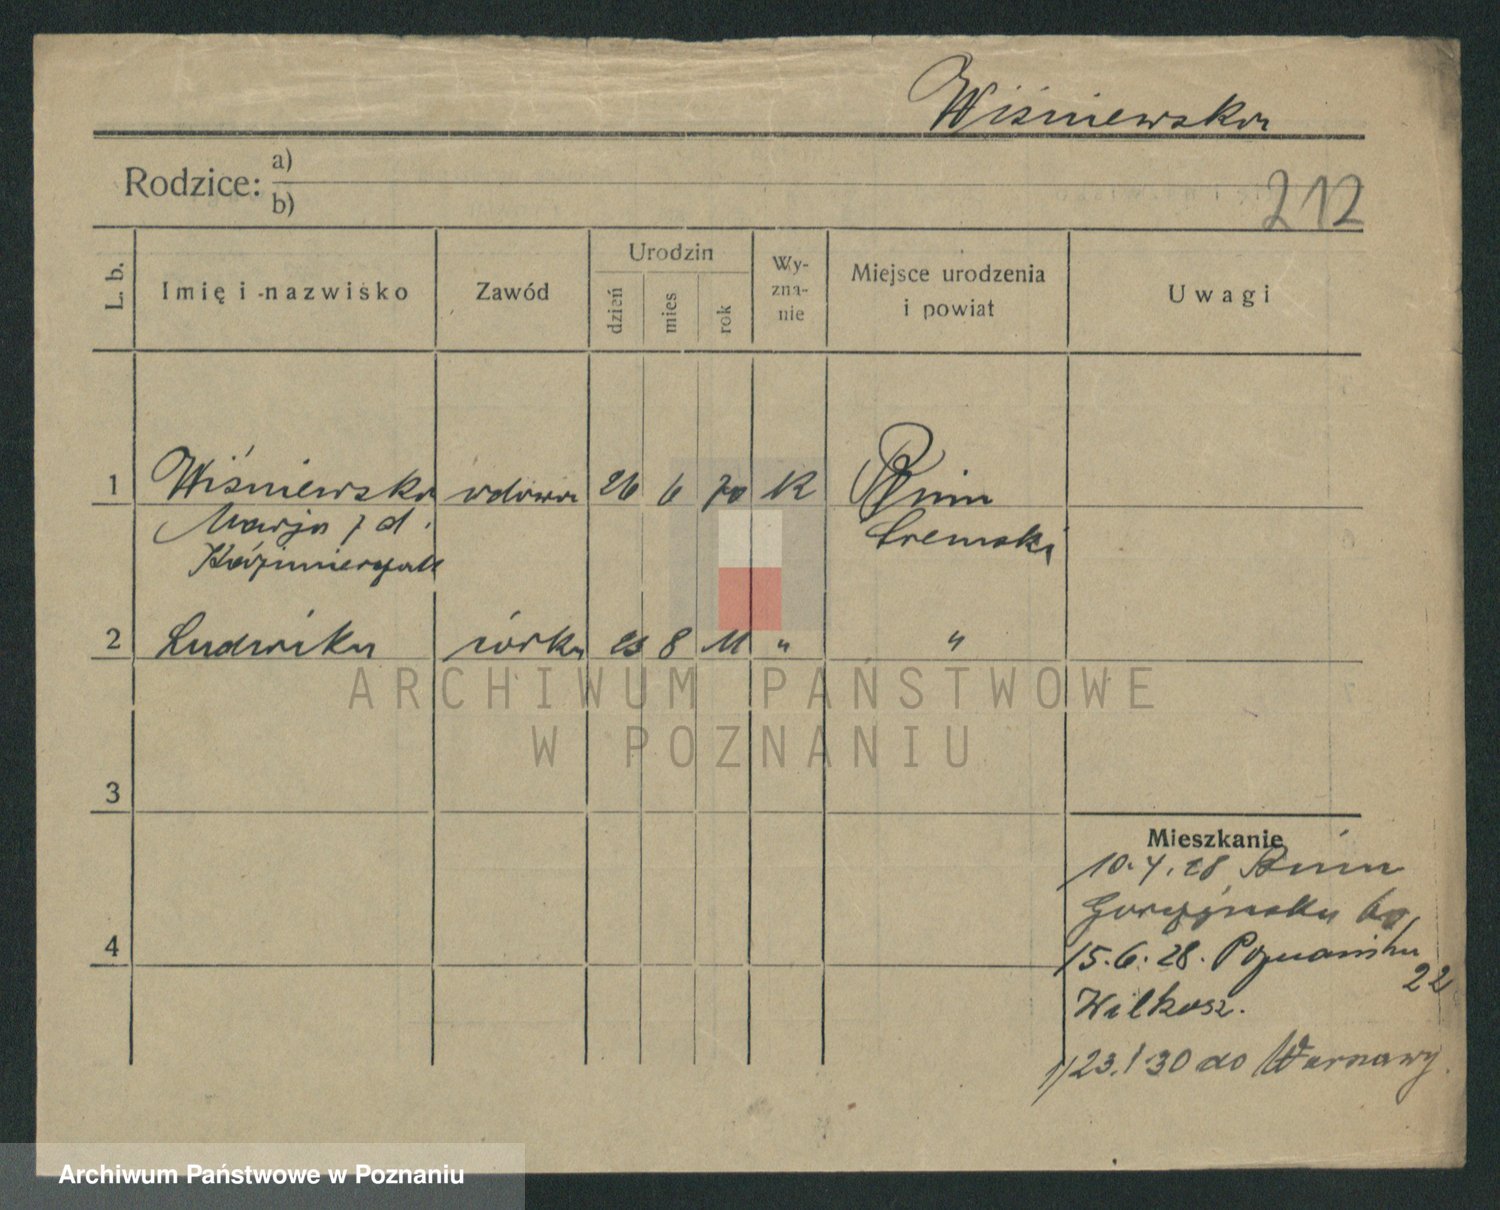 Wiśniewska
Rodzice: a)
b)
212
L. b.
Imię i nazwisko
Zawód
Urodzin
dzień
mies
rok
Wy-
zna-
nie
Miejsce urodzenia
i powiat
Uwagi
1 Wiśniewska wdowa 26 6 70 K Bnin
Marja z d. Śremski
Kaźmierczak
2 Ludwika córka 8 11 " "
ARCHIWUM PAŃSTWOWE
W POZNANIU
3
Mieszkanie
10.4.28 Bnin
4
15.6.28. Poznańska
22
Wilkosz.
1/23.1 30 do Warszawy.
Archiwum Państwowe w Poznaniu